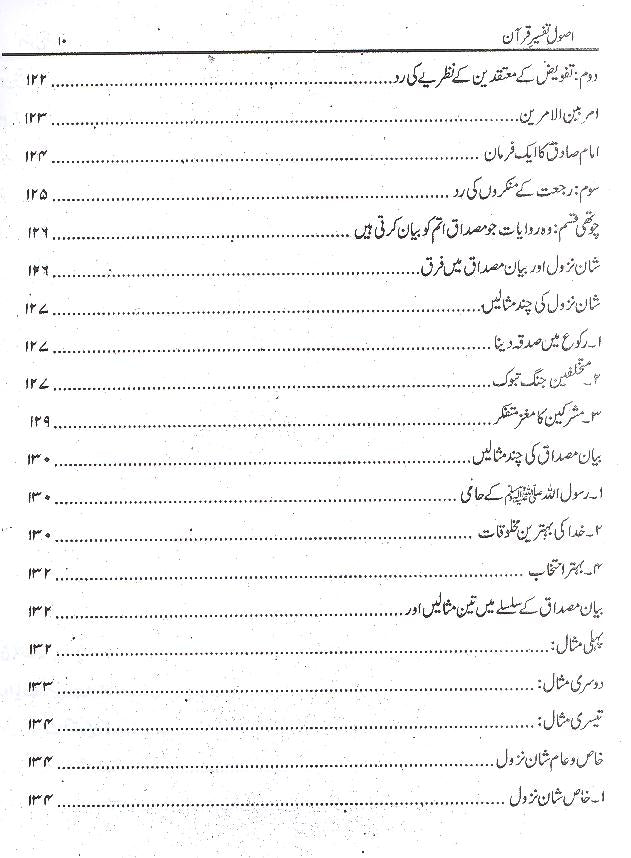 اصول تفسیر قرآن ۱۰
دوم: تفویض کے معتقدین کے نظریے کی رد ........ ۱۲۲
امر بین الامرین ........ ۱۲۳
امام صادقؑ کا ایک فرمان ........ ۱۲۴
سوم: رجعت کے منکروں کی رد ........ ۱۲۵
چوتھی قسم: وہ روایات جو مصداق اتم کو بیان کرتی ہیں ........ ۱۲۶
شان نزول اور بیان مصداق میں فرق ........ ۱۲۶
شان نزول کی چند مثالیں ........ ۱۲۷
۱۔ رکوع میں صدقہ دینا ........ ۱۲۷
۲۔ متخلفین جنگ تبوک ........ ۱۲۷
۳۔ مشرکین کا مغز متفکر ........ ۱۲۹
بیان مصداق کی چند مثالیں ........ ۱۳۰
۱۔ رسول اللہ ﷺ کے حامی ........ ۱۳۰
۲۔ خدا کی بہترین مخلوقات ........ ۱۳۰
۴۔ بہتر انتخاب ........ ۱۳۲
بیان مصداق کے سلسلے میں تین مثالیں اور ........ ۱۳۲
پہلی مثال: ........ ۱۳۲
دوسری مثال: ........ ۱۳۳
تیسری مثال: ........ ۱۳۴
خاص و عام شان نزول ........ ۱۳۴
۱۔ خاص شان نزول ........ ۱۳۴